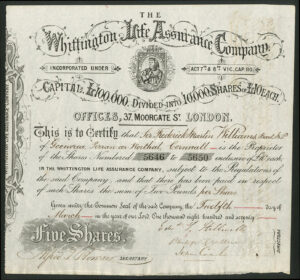 THE
Whittington Life Assurance Company,
INCORPORATED UNDER ACT 7TH & 8TH VIC. CAP. 110.
CAPITAL £100,000, DIVIDED INTO 10,000 SHARES of £10 EACH.
OFFICES, 37, MOORGATE ST. LONDON.
This is to Certify that Sir Frederick Martin Williams
of Goonvrea Perran ar Worthal Cornwall is the Proprietor
of the Shares Numbered 5646 to 5650 inclusive of £10 each
IN THE WHITTINGTON LIFE ASSURANCE COMPANY, subject to the Regulations of
the said Company, and that there has been paid in respect
of such Shares the sum of Two Pounds per Share
Given under the Common Seal of the said Company the Twelfth day of
March in the year of our Lord One thousand eight hundred and seventy
Five Shares.
SECRETARY